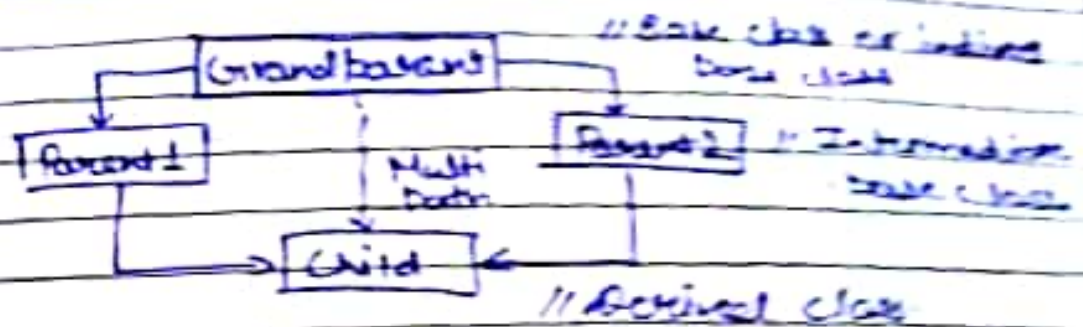 Grandparent
// Base class or indirect
base class
Parent1
Parent2
// Intermediate
base class
Multi
Path
Child
// Derived class